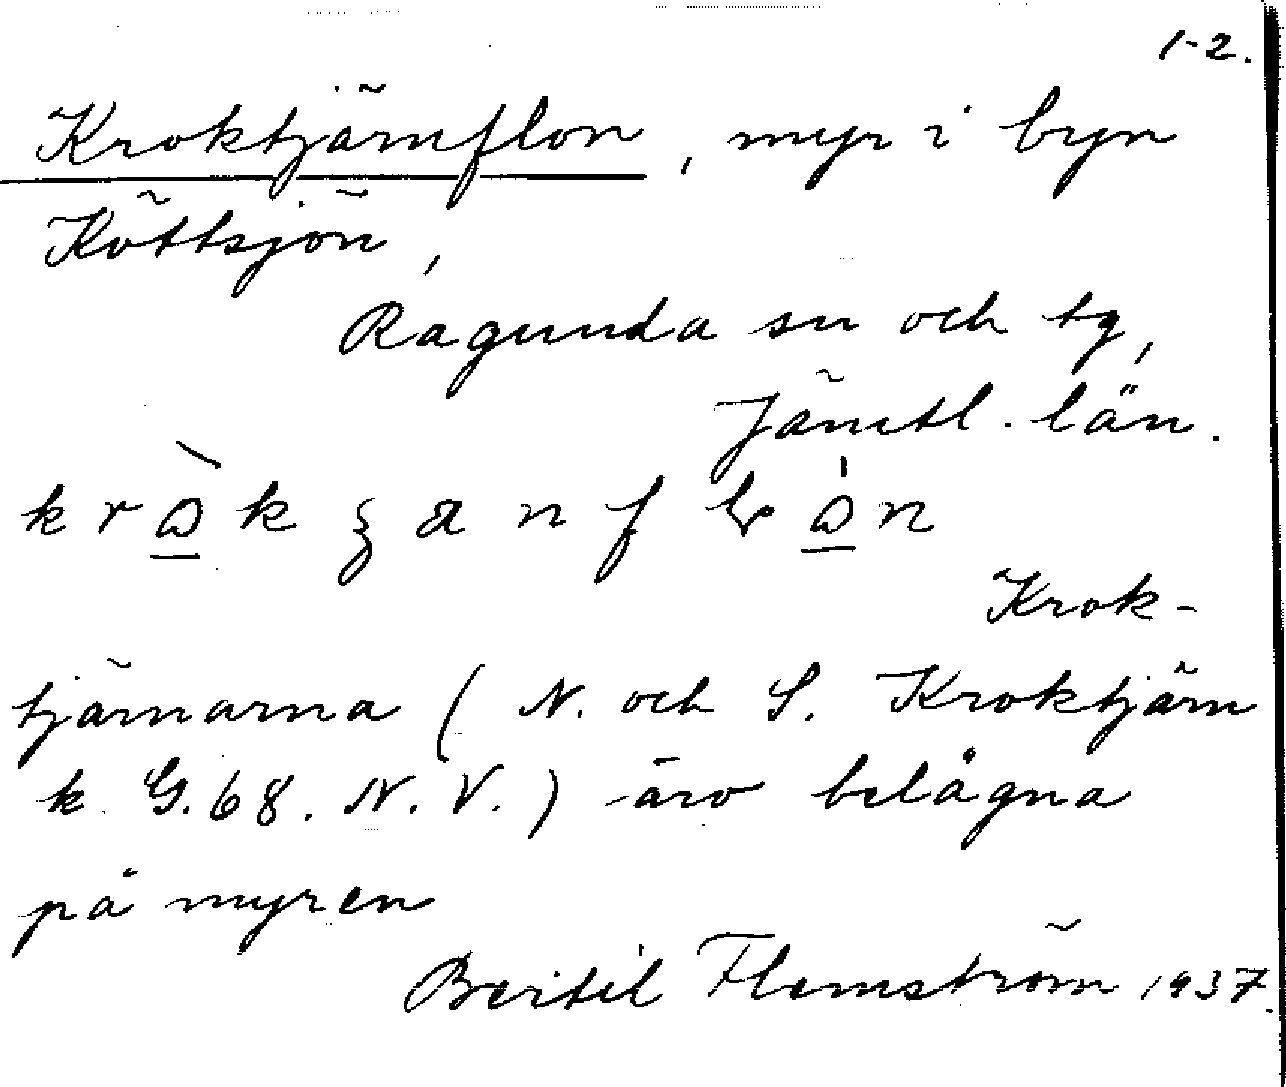 1-2.
Kroktjärnflon, myr i byn
Köttsjön,
Ragunda sn och tg,
Jämtl. län.
Krok-
tjärnarna (N. och S. Kroktjärn
k. G. 68. N. V.) äro belägna
på myren
Bertil Flemström 1937.